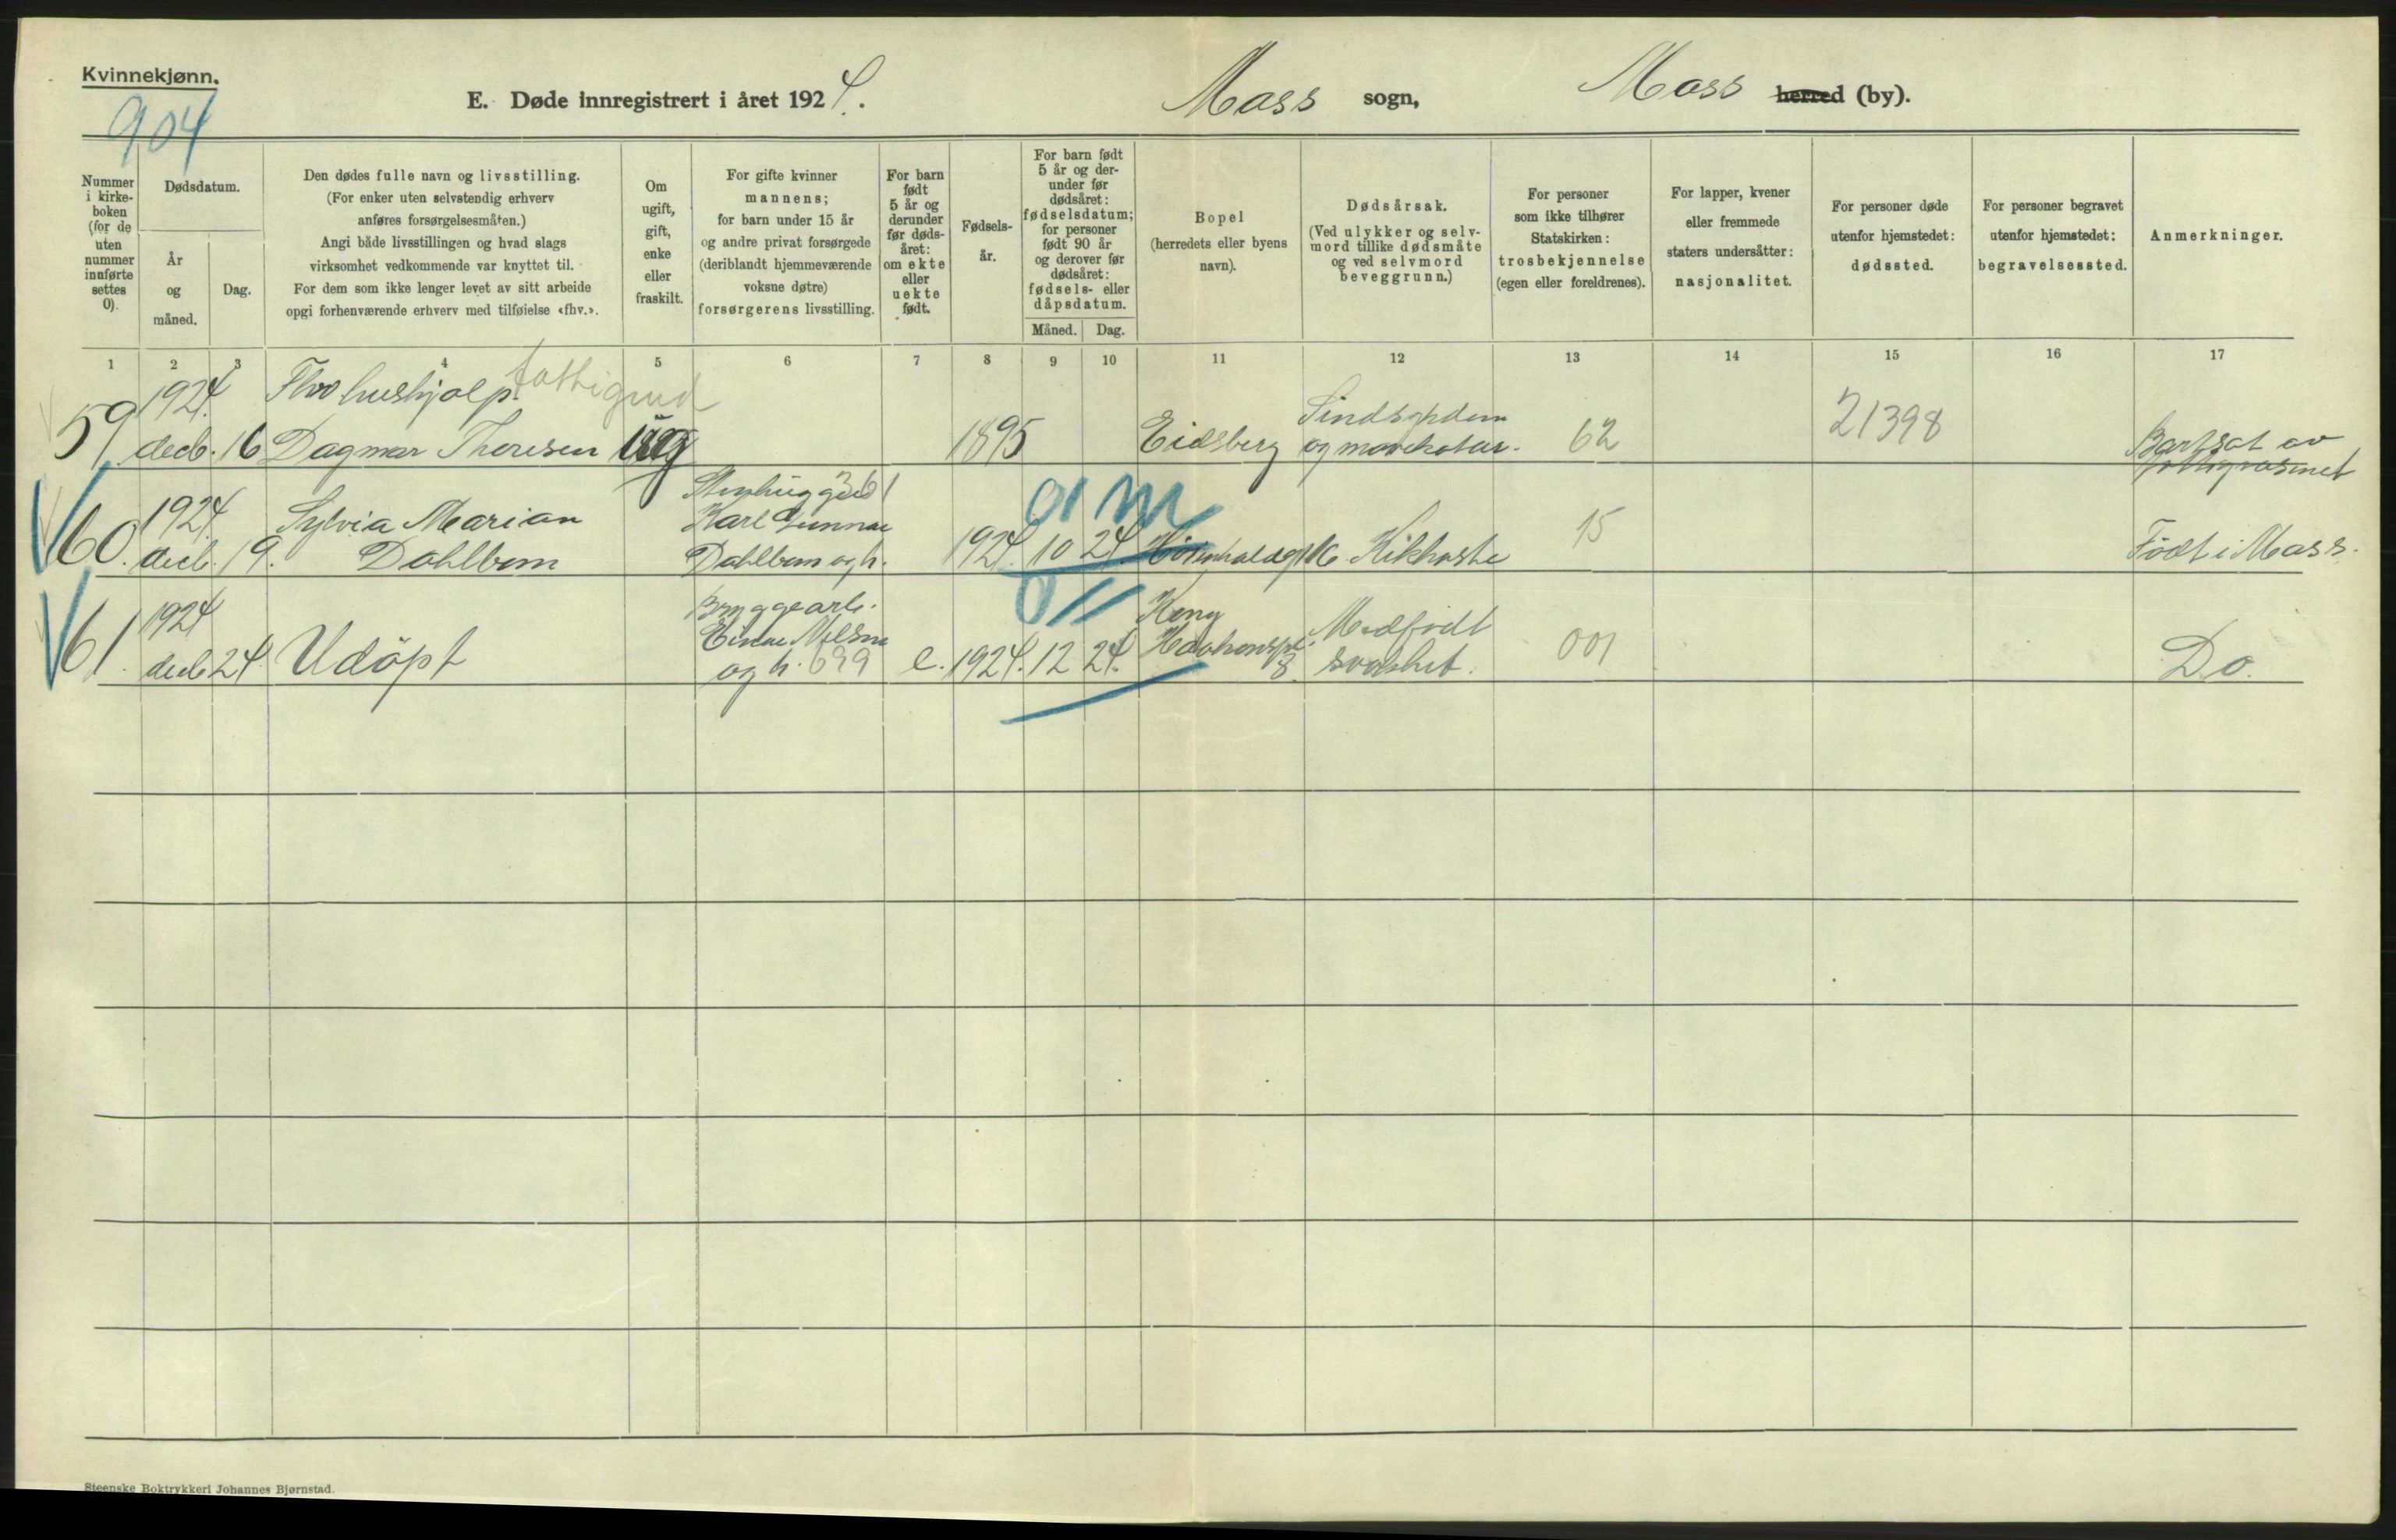 Kvinnekjønn.
904
E. Døde innregistrert i året 1924.
Moss sogn,
Moss herred (by).
Nummer
i kirke-
boken
(for de
uten
nummer
innførte
settes
0).
Dødsdatum.
År
og
måned.
Dag.
Den dødes fulle navn og livsstilling.
(For enker uten selvstendig erhverv
anføres forsørgelsesmåten.)
Angi både livsstillingen og hvad slags
virksomhet vedkommende var knyttet til.
For dem som ikke lenger levet av sitt arbeide
opgi forhenværende erhverv med tilføielse «fhv.».
Om
ugift,
gift,
enke
eller
fraskilt.
For gifte kvinner
mannens;
for barn under 15 år
og andre privat forsørgede
(deriblandt hjemmeværende
voksne døtre)
forsørgerens livsstilling.
For barn
født
5 år og
derunder
før døds-
året:
om ekte
eller
uekte
født.
Fødsels-
år.
For barn født
5 år og der-
under før
dødsåret:
fødselsdatum;
for personer
født 90 år
og derover før
dødsåret:
fødsels- eller
dåpsdatum.
Måned. Dag.
Bopel
(herredets eller byens
navn).
Dødsårsak.
(Ved ulykker og selv-
mord tillike dødsmåte
og ved selvmord
beveggrunn.)
For personer
som ikke tilhører
Statskirken:
trosbekjennelse
(egen eller foreldrenes).
For lapper, kvener
eller fremmede
staters undersåtter:
nasjonalitet.
For personer døde
utenfor hjemstedet:
dødssted.
For personer begravet
utenfor hjemstedet:
begravelsessted.
Anmerkninger.
1 2 3 4 5 6 7 8 9 10 11 12 13 14 15 16 17
59
1924.
decb. 16
Fhv hushjelp.
Dagmar Thoresen
ug
1895
Eidsberg
Sindsygdom
62
21398
Bortsat av
fattigvæsenet
60.
1924
decb. 19.
Sylvia Marian
Dahlbom
361
Karl Gunnar
Dahlbom og h.
1924. 10 24.
01 m
16
Kikhoste
15
Født i Moss.
61.
1924
decb 24
Udöpt
Bryggearb.
Einar Nilsen
og h. 699
e.
1924. 12 24.
0
Kong
Haakonspl.
8.
Medfødt
svakhet.
001
Do.
Steenske Boktrykkeri Johannes Bjørnstad.